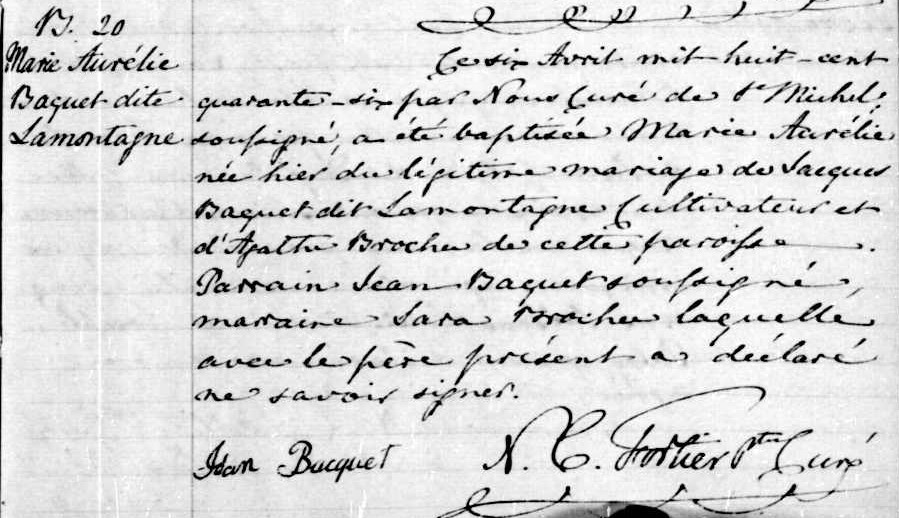 B. 20
Marie Aurélie
Baquet dite
Lamontagne
Ce six Avril mil-huit-cent
quarante-six par Nous Curé de St Michel,
soussigné, a été baptisée Marie Aurélie
née hier du légitime mariage de Jacques
Baquet dit Lamontagne Cultivateur et
d'Agathe Brochu de cette paroisse.
Parrain Jean Baquet soussigné,
marraine Sara Brochu laquelle
avec le père présent a déclaré
ne savoir signer.
Jean Bacquet
N. C. Fortier Ptre Curé